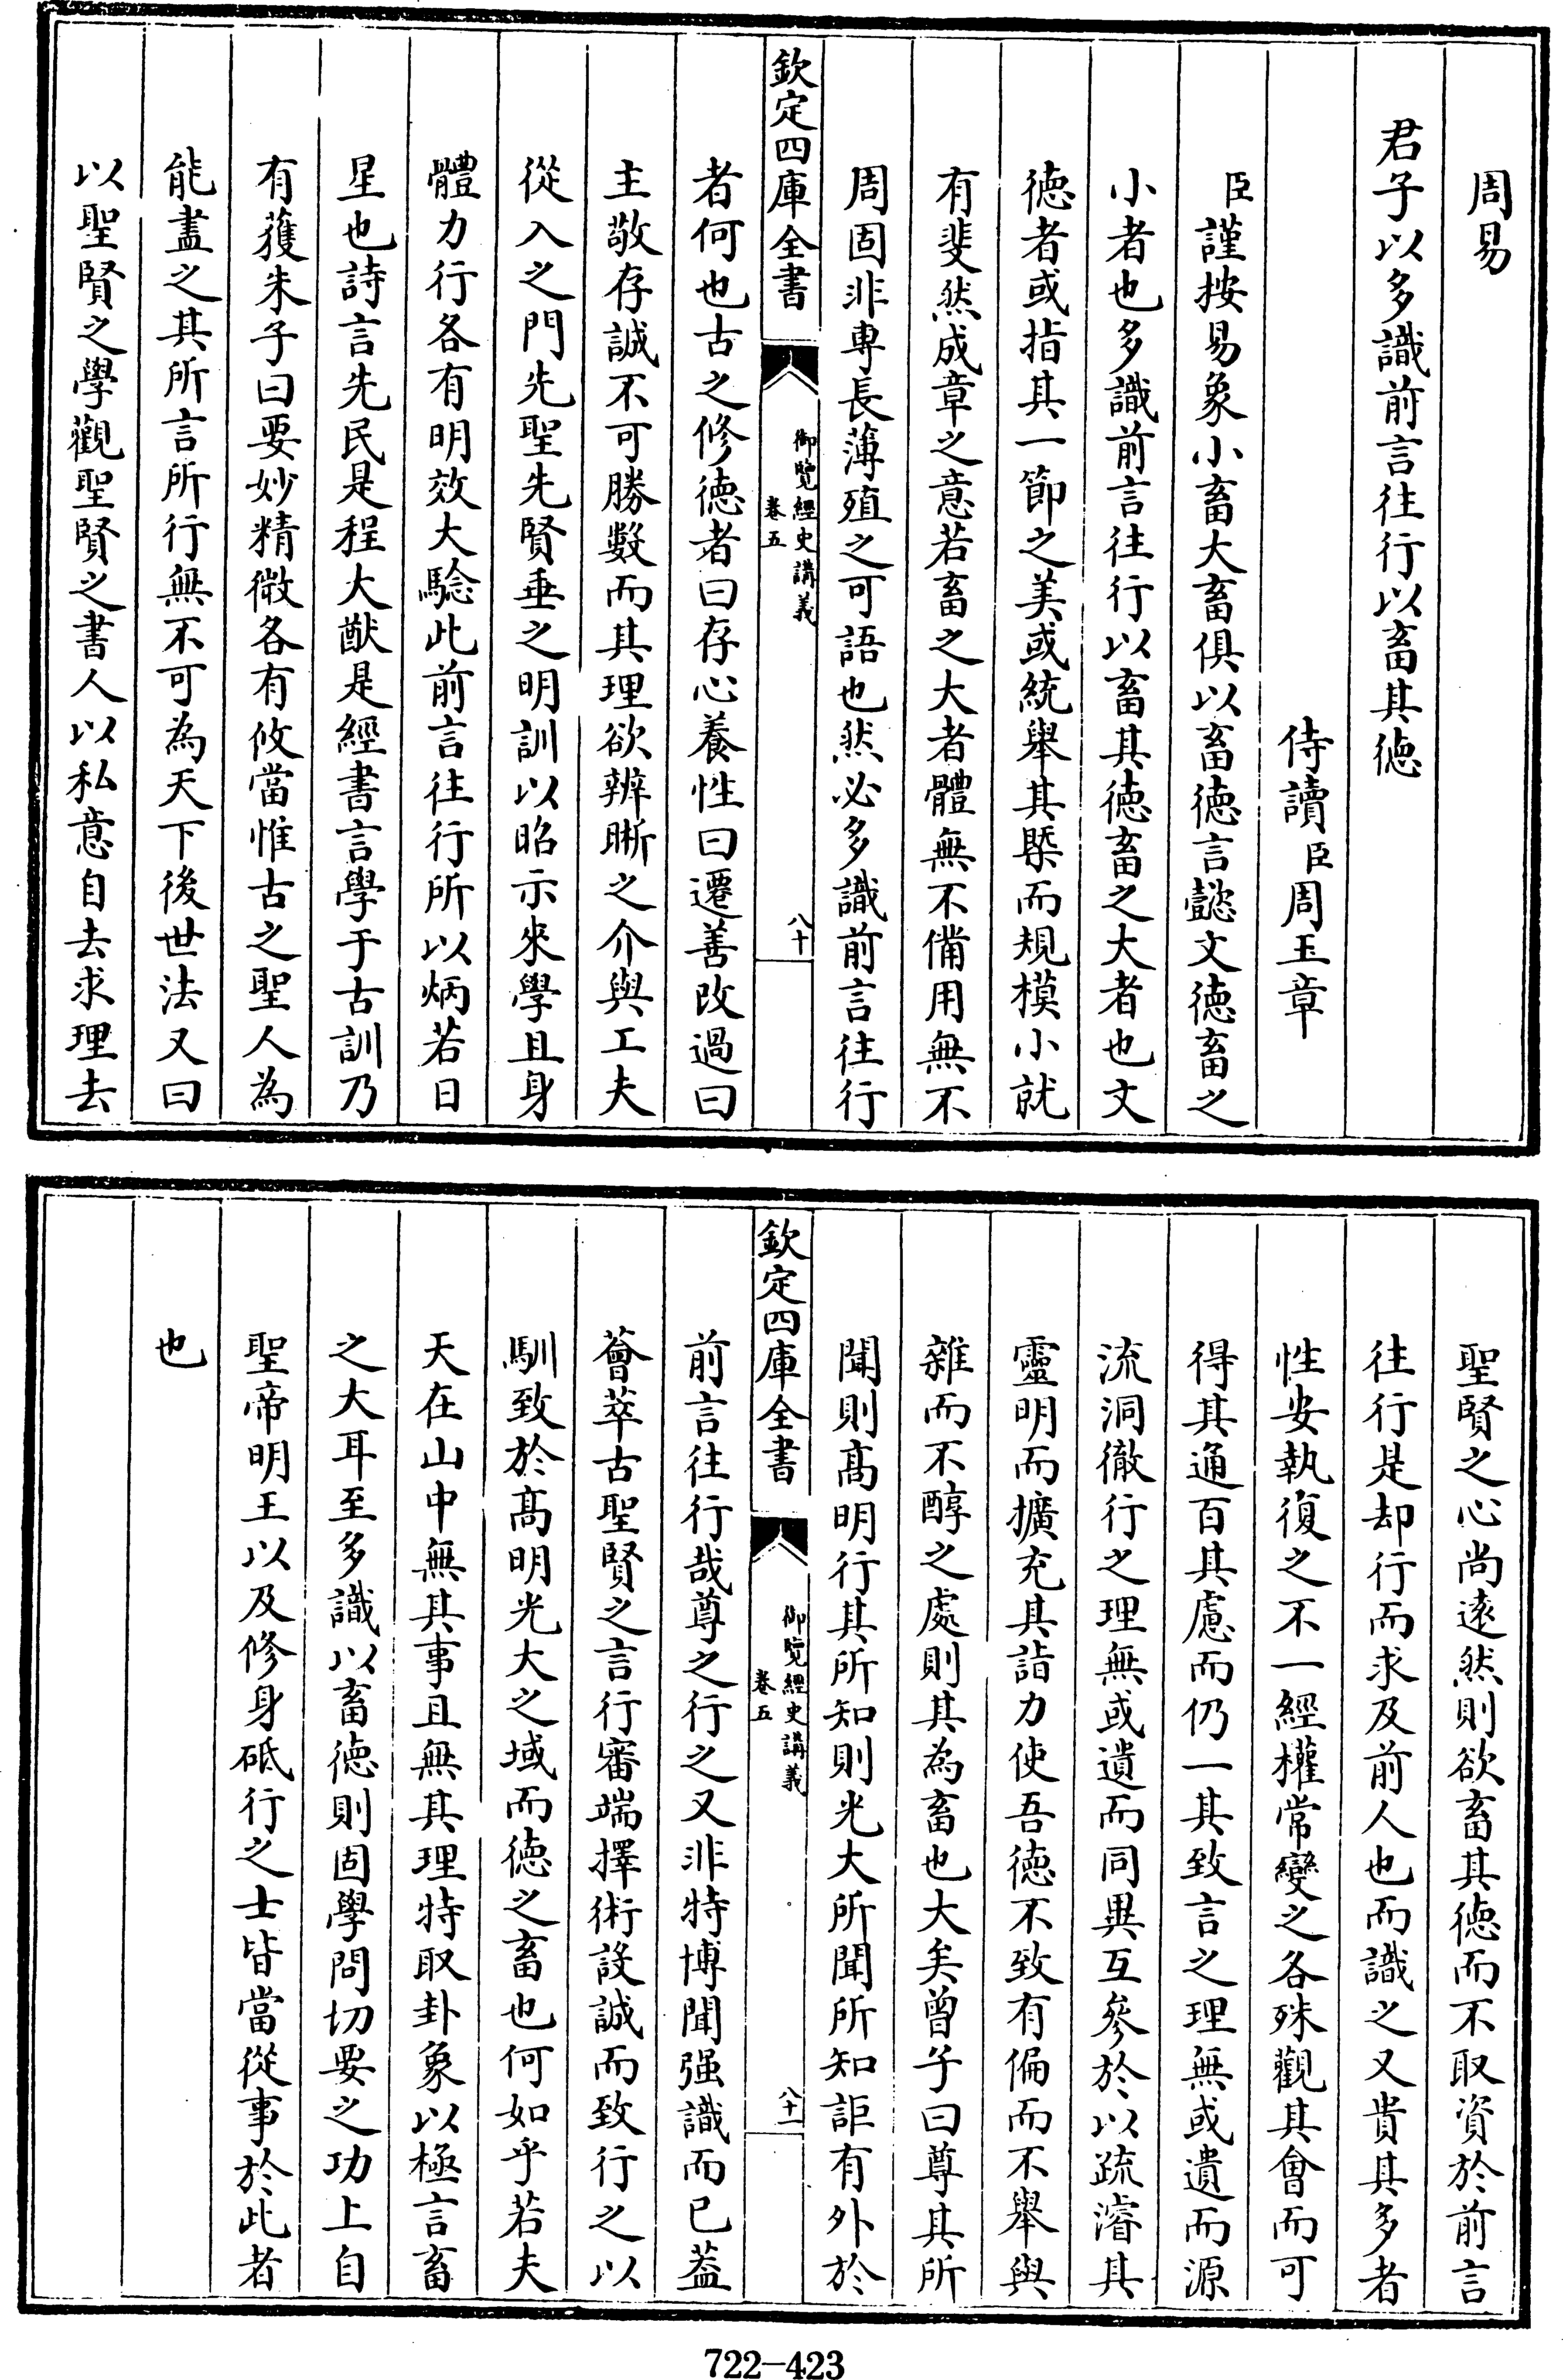 周易
君子以多識前言往行以畜其徳
侍讀臣周玉章
臣謹按易象小畜大畜俱以畜徳言懿文徳畜之
小者也多識前言往行以畜其徳畜之大者也文
徳者或指其一節之美或統舉其槩而規模小就
有斐然成章之意若畜之大者體無不備用無不
周固非専長薄殖之可語也然必多識前言往行
欽定四庫全書
御覽經史講義
卷五
八十
者何也古之修徳者曰存心養性曰遷善改過曰
主敬存誠不可勝數而其理欲辨晰之介與工夫
從入之門先聖先賢垂之明訓以昭示來學且身
體力行各有明效大騐此前言往行所以炳若日
星也詩言先民是程大猷是經書言學于古訓乃
有獲朱子曰要妙精微各有攸當惟古之聖人為
能盡之其所言所行無不可為天下後世法又曰
以聖賢之學觀聖賢之書人以私意自去求理去
聖賢之心尚逺然則欲畜其徳而不取資於前言
往行是却行而求及前人也而識之又貴其多者
性安執復之不一經權常變之各殊觀其會而可
得其通百其慮而仍一其致言之理無或遺而源
流洞徹行之理無或遺而同異互參於以疏濬其
靈明而擴充其詣力使吾徳不致有偏而不舉與
雜而不醇之處則其為畜也大矣曾子曰尊其所
聞則髙明行其所知則光大所聞所知詎有外於
欽定四庫全書
御覽經史講義
卷五
八十一
前言往行哉尊之行之又非特博聞强識而已葢
薈萃古聖賢之言行審端擇術設誠而致行之以
馴致於髙明光大之域而徳之畜也何如乎若夫
天在山中無其事且無其理特取卦象以極言畜
之大耳至多識以畜徳則固學問切要之功上自
聖帝明王以及修身砥行之士皆當從事於此者
也
722-423